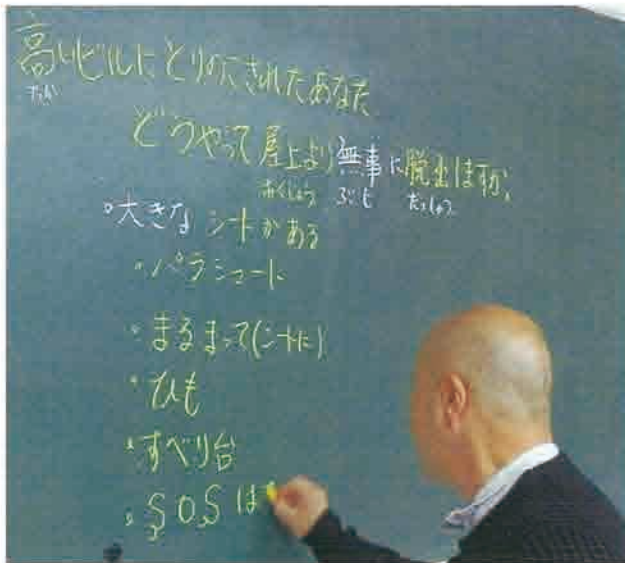 高いビルにとりのこされたあなた
たか
どうやって屋上より無事に脱出しますか。
おくじょう ぶじ だっしゅつ
・大きなシートがある
・パラシュート
・まるまって(シートに)
・ひも
・すべり台
・SOS